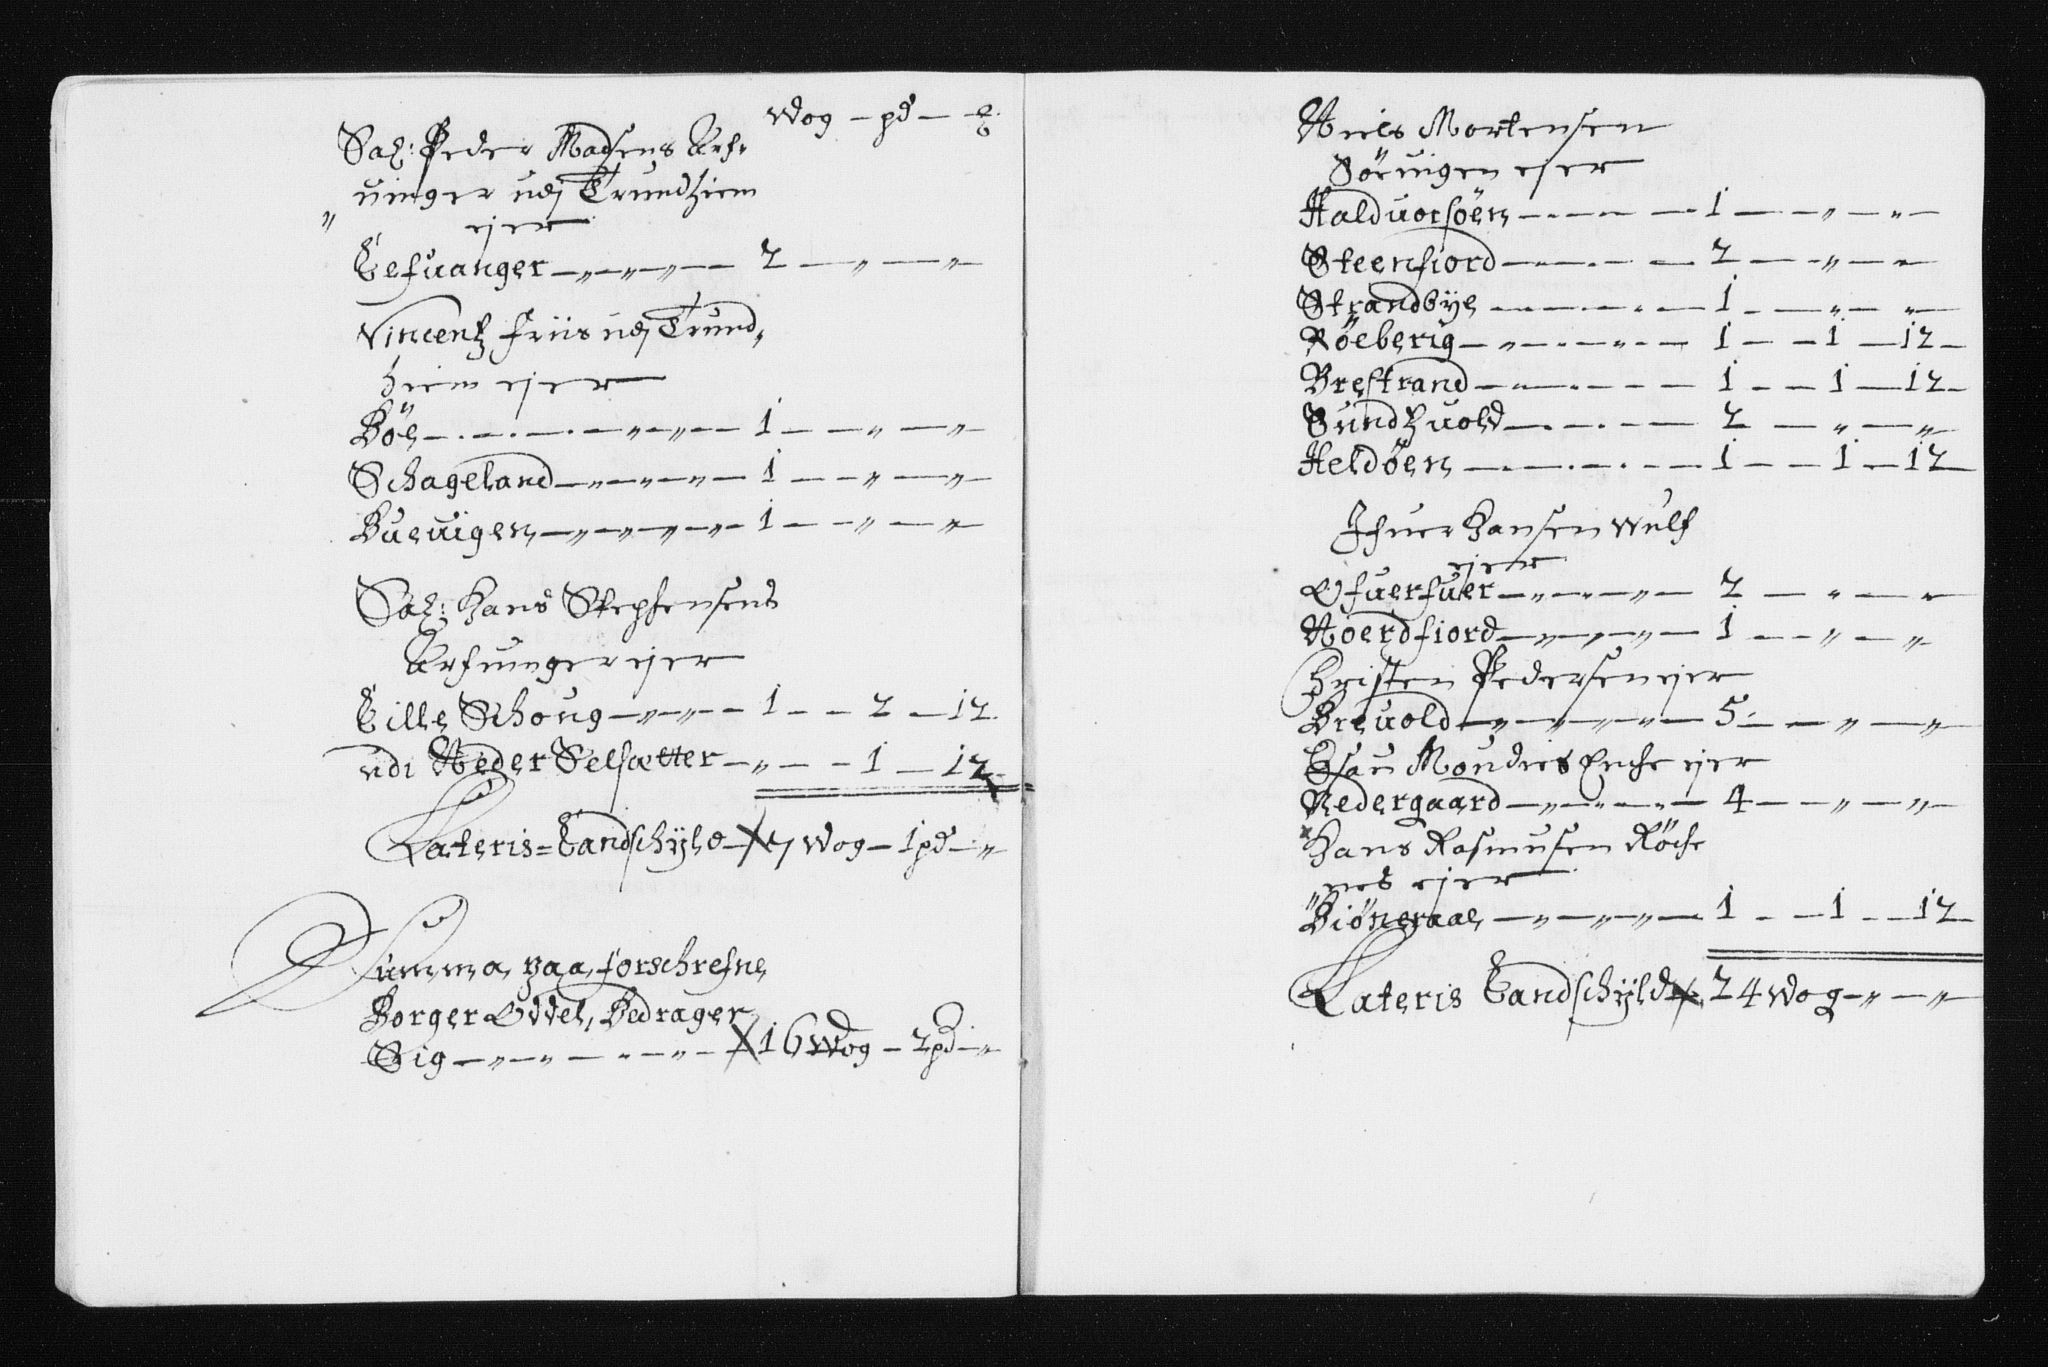 Wog — pd — ℔
Sal: Peder Madsens Arf-
uinger udj Trundhiem
" ejer
Lefuanger — " — " — " — 2 — " — "
Vincentz Friis udj Trund-
hiem ejer
Böe — — — — " — " — 1 — — " — "
Schageland — " — " — " — 1 — — " — "
Bueuigen — " — " — " — " — 1 — — " — "
Sal: Hans Stephensens
Arfuinger ejer
Lille Schoug — " — " — 1 — — 2 — 12
udi Neder Selsætter — " — — 1 — 12
Lateris = Landschÿld — 7 Wog — 1 pd — "
Summa paa forschrefne
Borger Oddel, Bedrager
Sig — " — " — — " — 16 Wog — 2 pd — "
Niels Mortensen
Söruigen ejer
Halduorsöen — — — — 1 — — " — "
Steenfiord — — — — 2 — — " — "
Strandbÿe — — — — 1 — — " — "
Röeberig — " — — " — 1 — — 1 — 12 —
Brestrand — " — — — 1 — — 1 — 12 —
Sundhuold — — — — 2 — " — "
Heldöen — — — — 1 — — 1 — 12
Ifuer Hansen Wulf
ejer
Ofuerfuer — " — — " — 2 — " — "
Noerdfiord — " — " — " — 1 — — " — "
Christen Pedersen ejer
Breuold — " — " — " — " — 5 — — " — "
Esau Moudies Enche ejer
Nedergaard — " — — " — 4 — — " — "
Hans Rasmusen Röche
nes ejer
Biöneraae — " — " — " — 1 — — 1 — — 12
Lateris Landschÿld 24 Wog — " — "